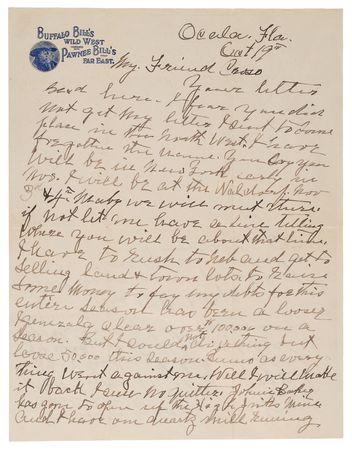 BUFFALO BILL'S
WILD WEST
PAWNEE BILL'S
FAR EAST.
Ocala, Fla.
Oct 19th
My Friend
Your letter
here. I fear you did
not get my letter I sent to some
place in the North West. I have
forgotten the name. You say you
will be in New York early in
Nov. I will be at the Waldorf Nov
3d & 4th Maby we will meet there
if not let me have a line telling
where you will be about that time.
I have to rush to Neb and get to
selling land & town lots. to raise
some money to pay my debts for this
entire season has been a loosing
I generaly clear over 100,000 on a
season. But I could do nothing but
loose 50,000 this season. as every
thing went against me. Well I will make
it back I am no quitter. Johnie Baker
has gone to open up the Mine
and I have one quartz mill running